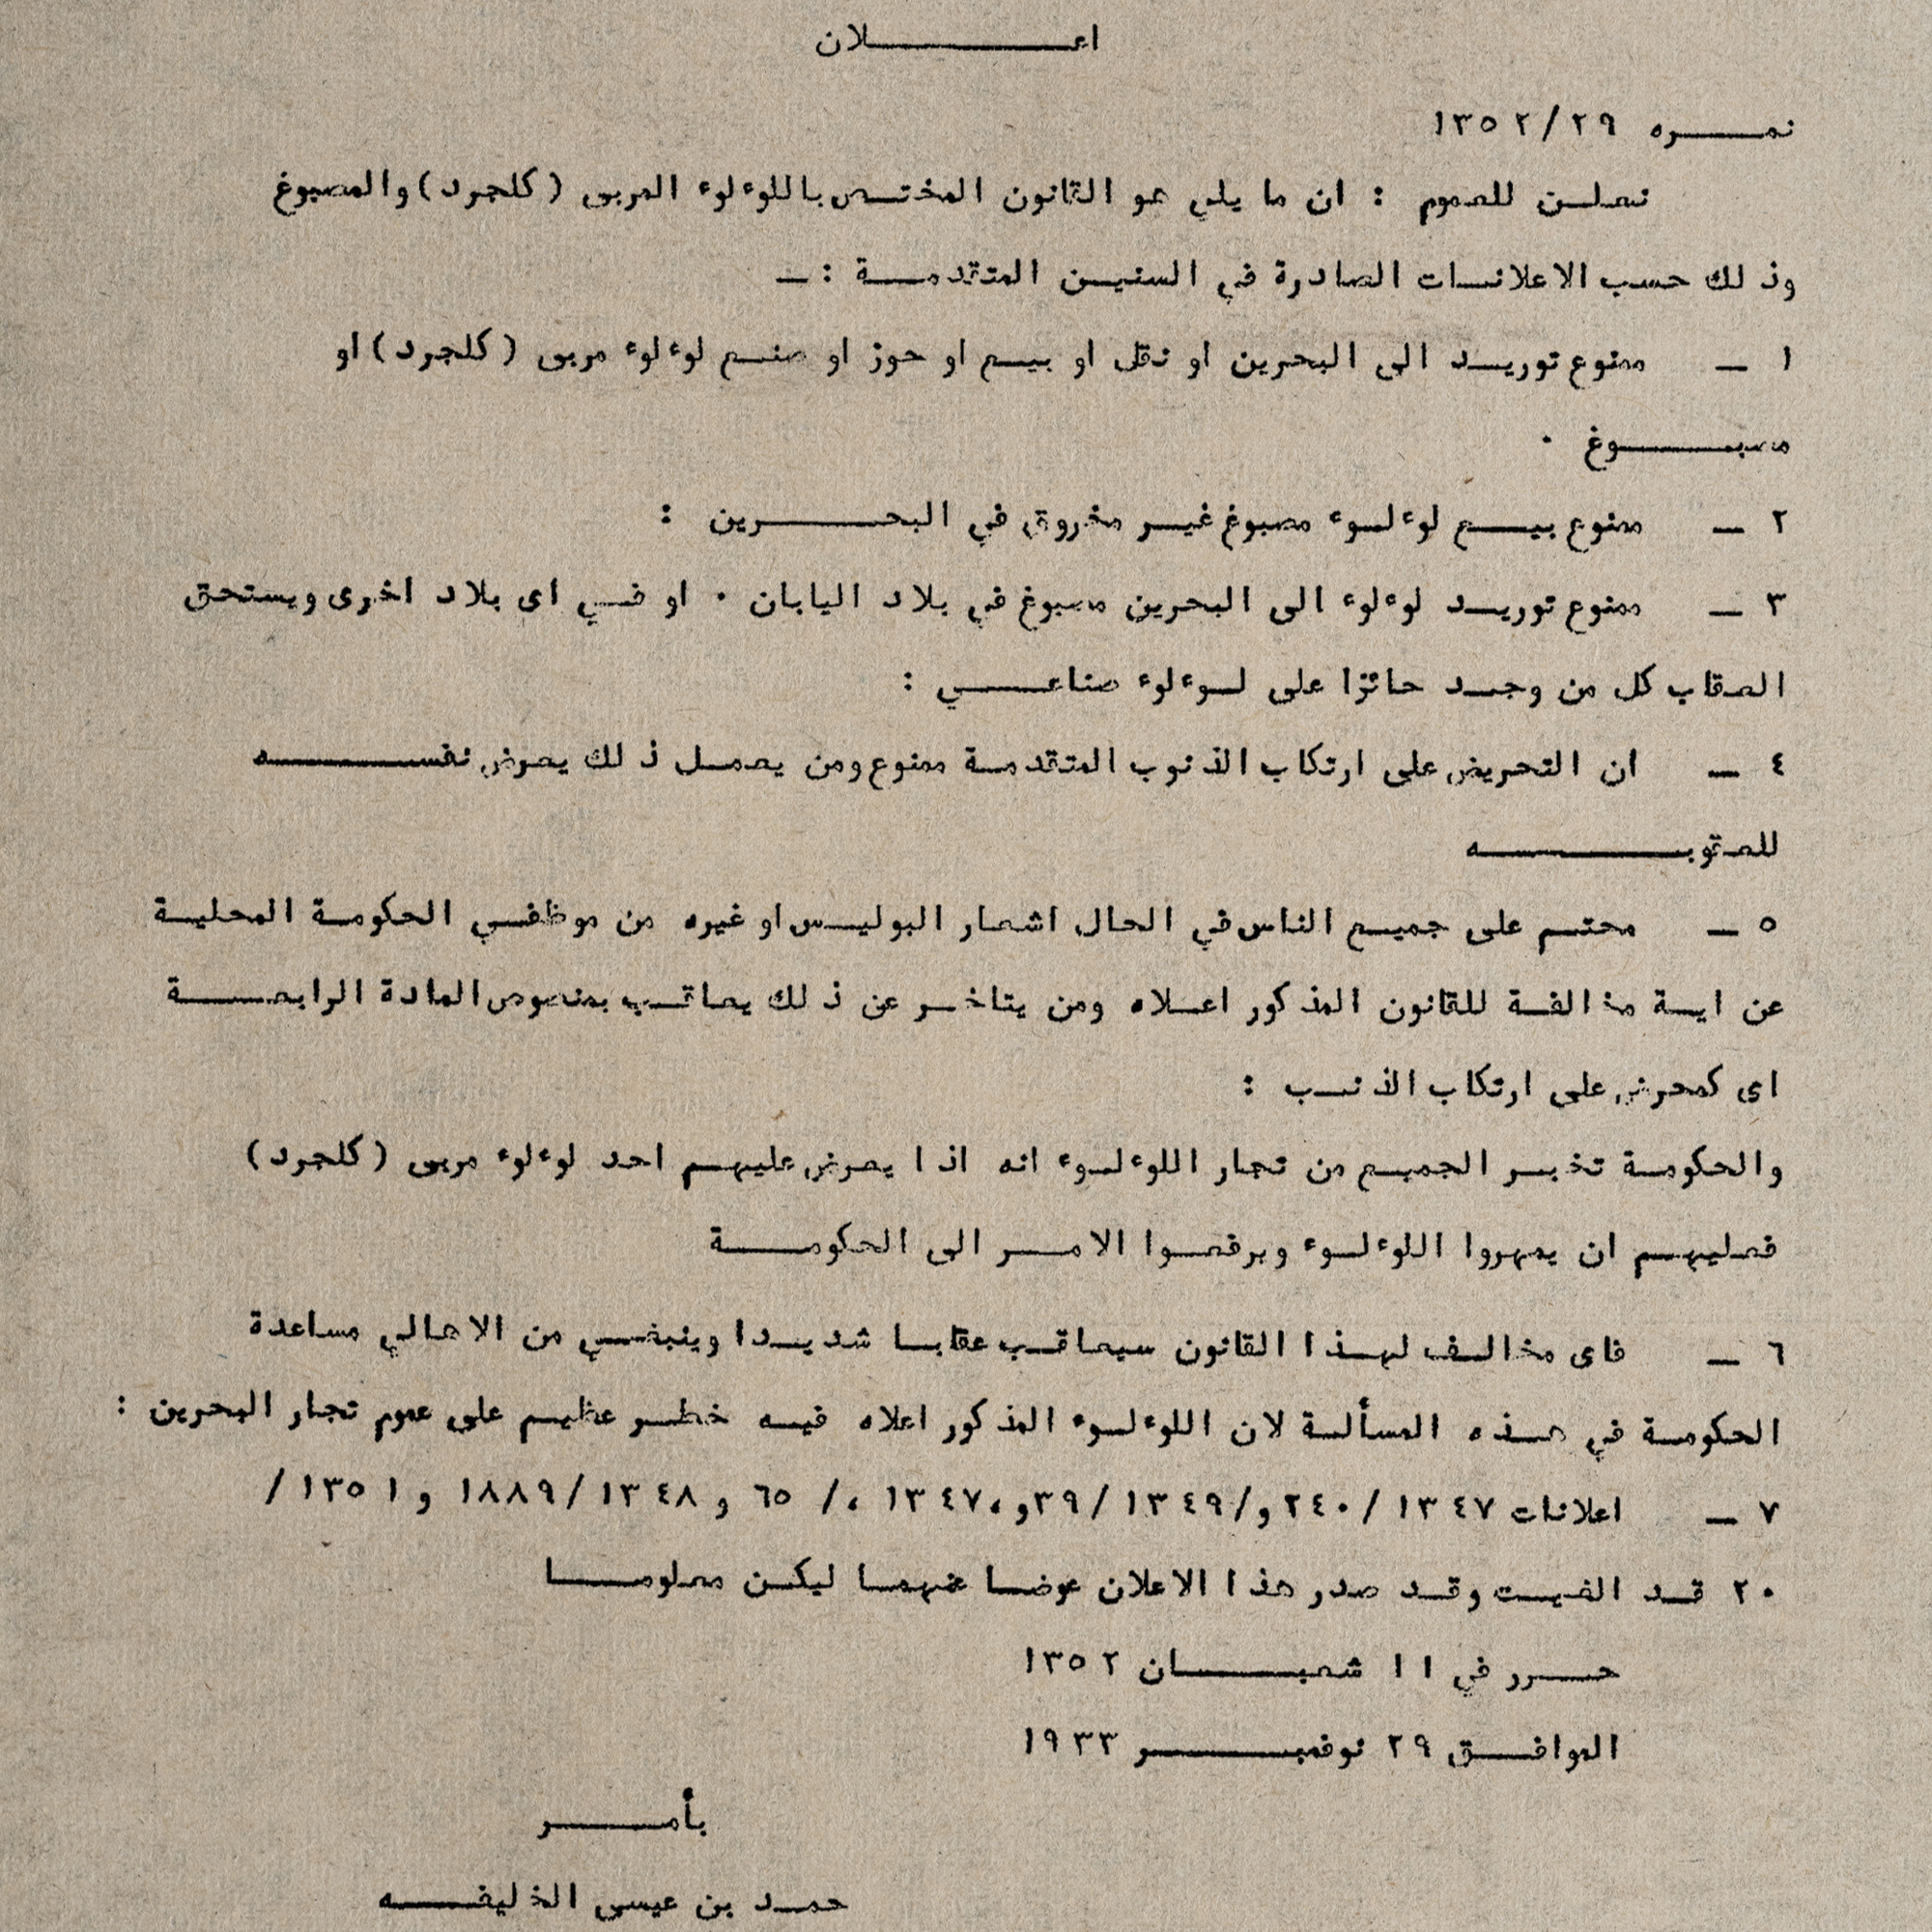 اعـــلان
نمـــره ٢٩/١٣٥٢
نعلــن للعموم : ان ما يلي هو القانون المختــص باللوءلوء المربى (كلجرد) والمصبوغ
وذلك حسب الاعلانــات الصادرة في السنيــن المتقدمــة :ــ
١ ــ ممنوع توريــد الى البحرين او نقل او بيــع او حوز او صنــع لوءلوء مربى (كلجرد) او
مصبـــوغ ٠
٢ ــ ممنوع بيــع لوءلــوء مصبوغ غيــر مخروق في البحـــرين :
٣ ــ ممنوع توريــد لوءلوء الى البحرين مصبوغ في بلاد اليابان ٠ او فــي اى بلاد اخرى ويستحق
العقاب كل من وجــد حائزا على لــوءلوء صناعـــي :
٤ ــ ان التحريض على ارتكاب الذنوب المتقدمــة ممنوع ومن يعمــل ذلك يعرض نفســـه
للعقوبـــه
٥ ــ محتــم على جميــع الناس في الحال اشعار البوليــس او غيره من موظفــي الحكومــة المحليــة
عن ايــة مخالفــة للقانون المذكور اعــلاه ومن يتاخــر عن ذلك يعاقــب بمنصوص المادة الرابعـــة
اى كمحرض على ارتكاب الذنــب :
والحكومــة تخبــر الجميــع من تجار اللوءلــوء انه اذا يعرض عليهــم احد لوءلوء مربى (كلجرد)
فعليهــم ان يمهروا اللوءلــوء وبرفعــوا الامــر الى الحكومـــة
٦ ــ فاى مخالــف لهــذا القانون سيعاقــب عقابــا شديــدا وينبغــي من الاهالي مساعدة
الحكومــة في هــذه المسألــة لان اللوءلــوء المذكور اعلاه فيــه خطــر عظيــم على عموم تجار البحرين :
٧ ــ اعلانات ١٣٤٧/٢٤٠ و/١٣٤٩/٣٩و،١٣٤٧ ،/ ٦٥ و ١٣٤٨/١٨٨٩ و ١٣٥١/
٢٠ قــد الغيــت وقــد صدر هذا الاعلان عوضــا عنهمــا ليكــن معلومـــا
حـــرر في ١١ شعبـــان ١٣٥٢
الموافــق ٢٩ نوفمبـــر ١٩٣٣
بأمـــر
حمــد بن عيسى الخليفـــه